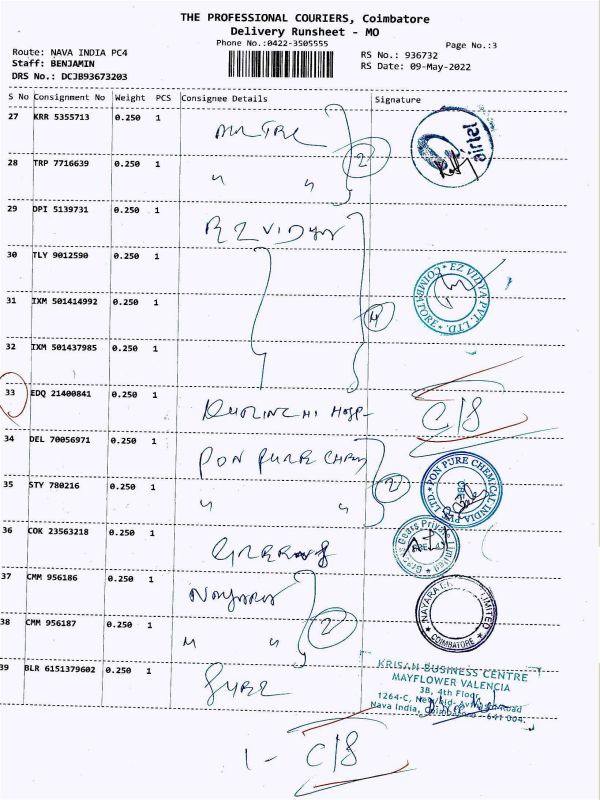 THE PROFESSIONAL COURIERS, Coimbatore
Delivery Runsheet - MO
Phone No.:0422-3505555
Page No.:3
Route: NAVA INDIA PC4
Staff: BENJAMIN
DRS No.: DCJB93673203
RS No.: 936732
RS Date: 09-May-2022
S No Consignment No Weight PCS Consignee Details Signature
27 KRR 5355713 0.250 1
airtel
28 TRP 7716639 0.250 1 " "
2
29 DPI 5139731 0.250 1 EZ VIDYA
30 TLY 9012590 0.250 1
EZ VIDYA PVT. LTD. * COIMBATORE *
31 IXM 501414992 0.250 1
4
32 IXM 501437985 0.250 1
33 EDQ 21400841 0.250 1 Hosp-
C/S
34 DEL 70056971 0.250 1 PON PURE CHEM
PON PURE CHEMICAL INDIA PVT LTD
CBE
35 STY 780216 0.250 1 " "
2
36 COK 23563218 0.250 1
Gears Private Limited
37 CMM 956186 0.250 1 Nayara
NAYARA LIMITED
COIMBATORE
38 CMM 956187 0.250 1 " "
2
39 BLR 6151379602 0.250 1
KRISAH BUSINESS CENTRE
MAYFLOWER VALENCIA
3B, 4th Floor,
1264-C, Road
Nava India, Coimbatore - 641 004.
1 - C/S